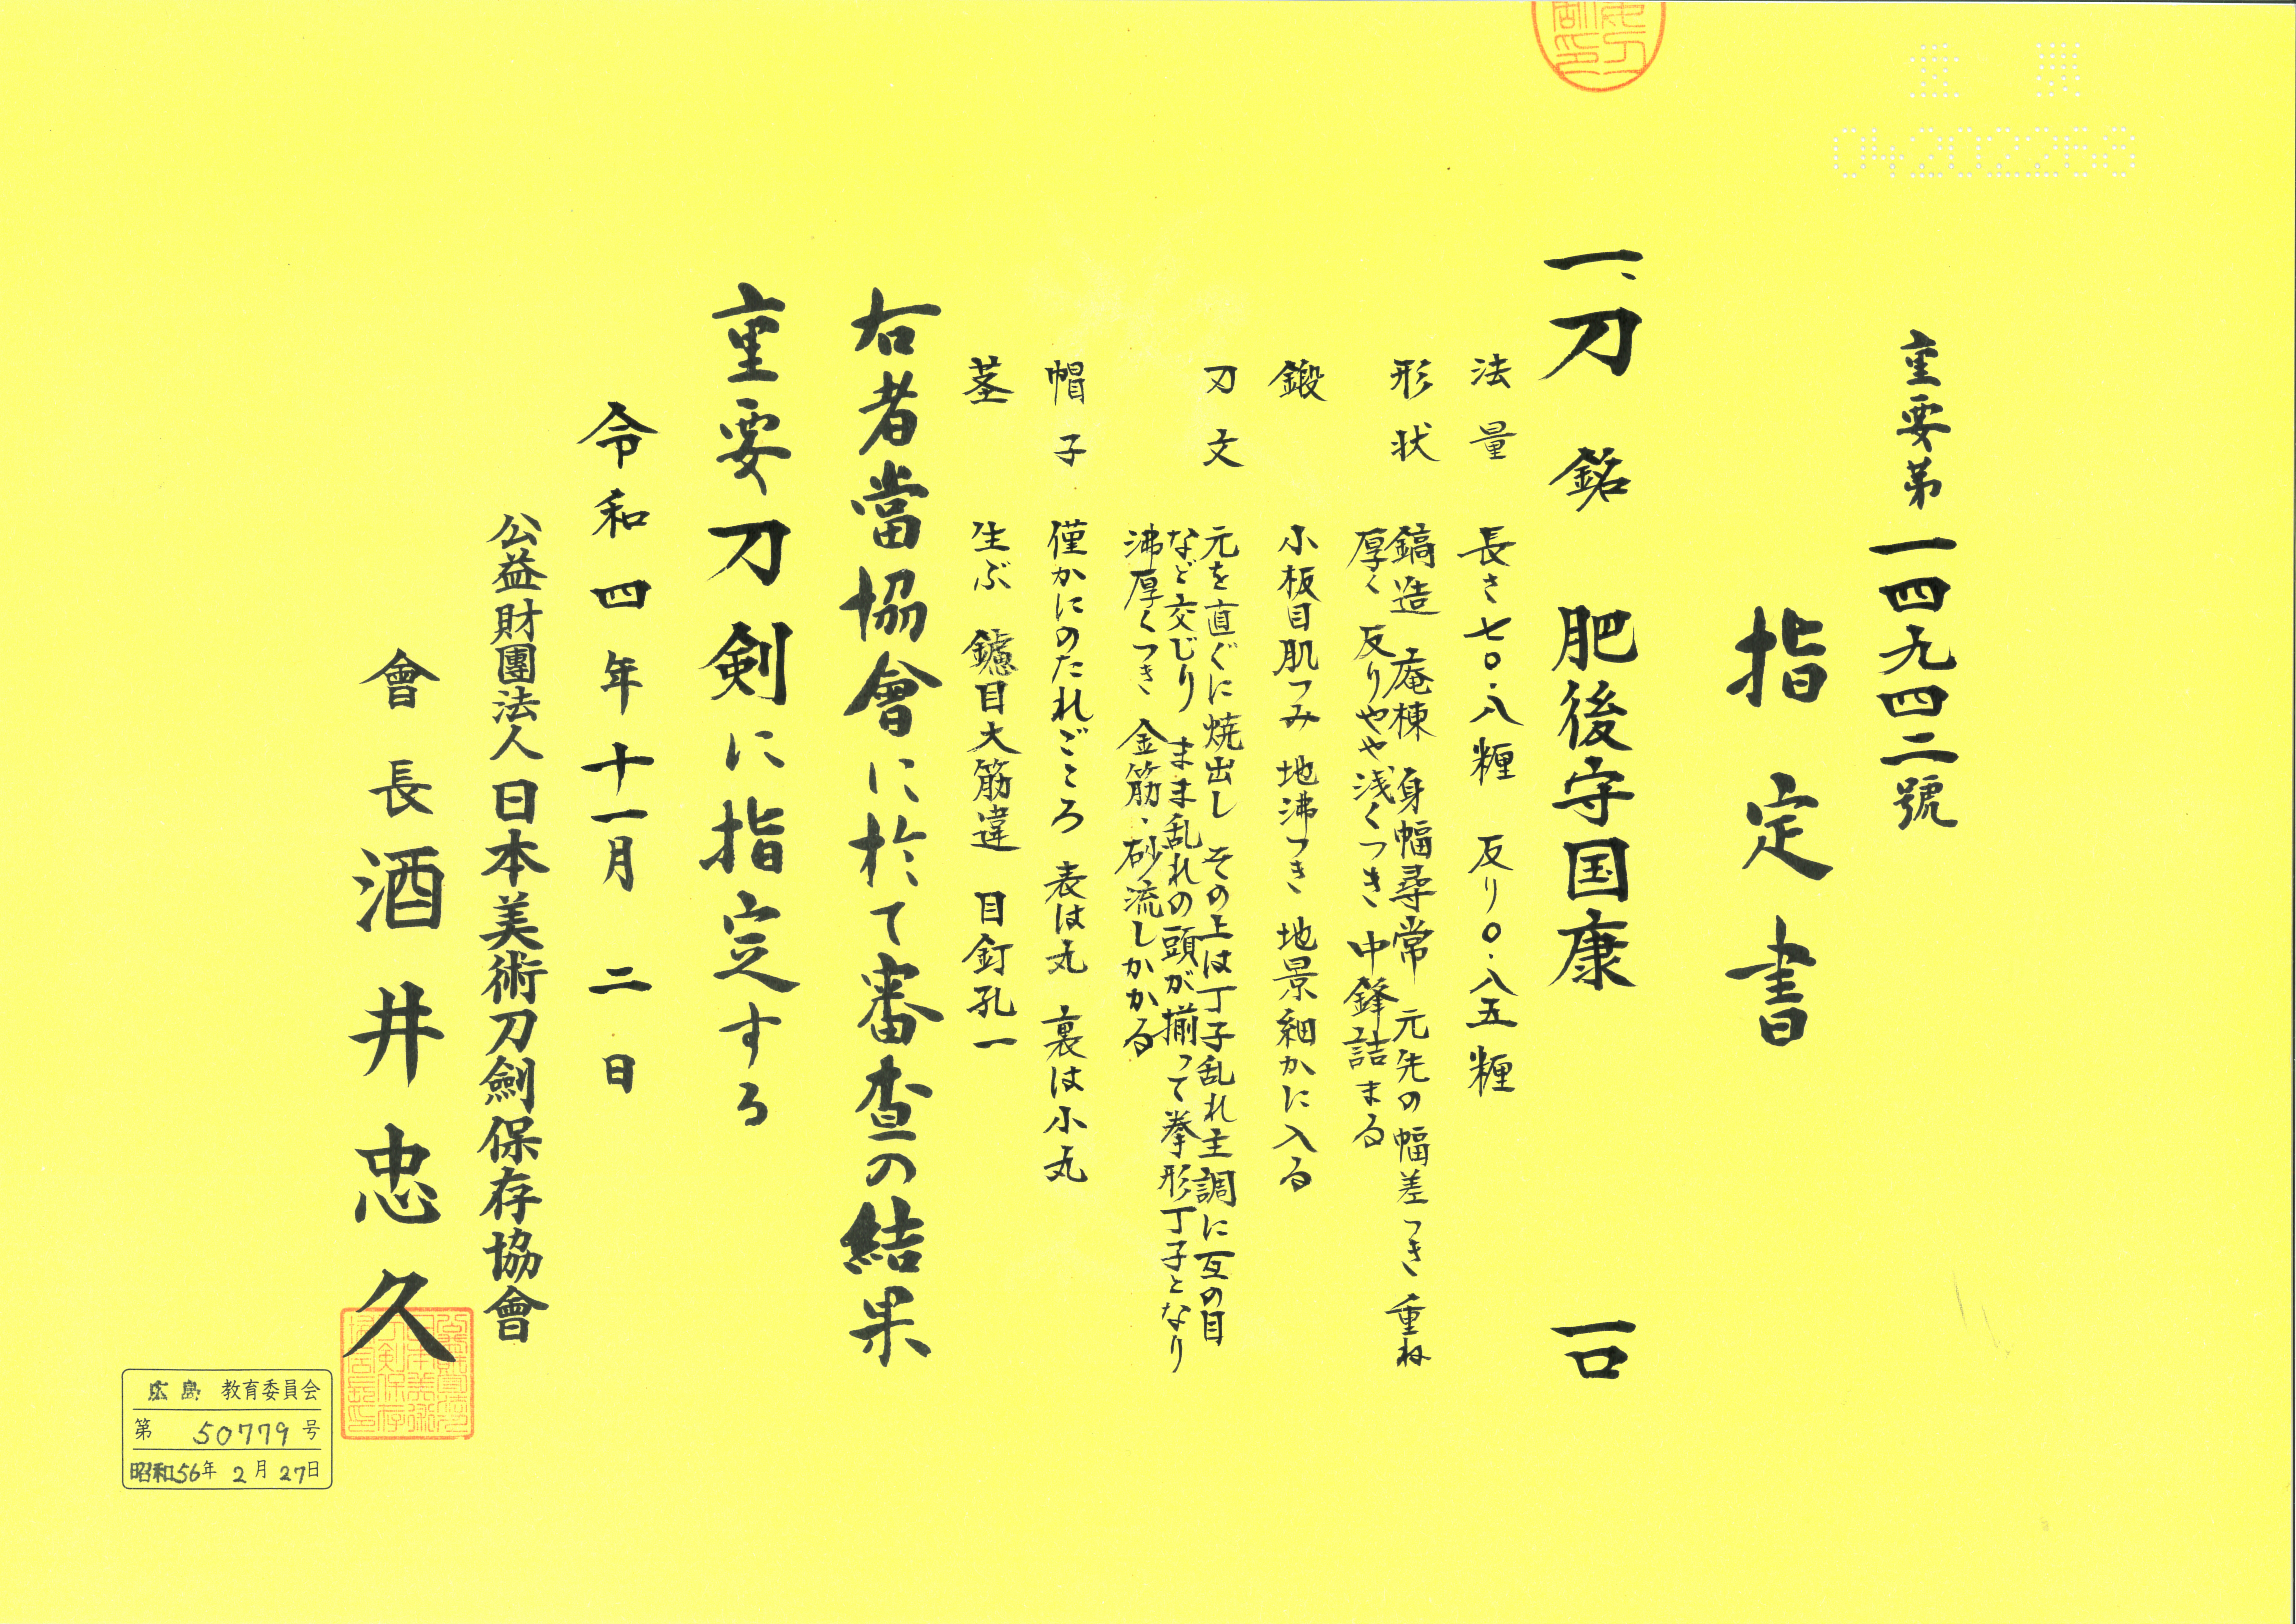 重要第一四九四二號
指定書
一、刀 銘 肥後守国康 一口
法量 長さ七〇.八糎 反り〇.八五糎
形状 鎬造 庵棟 身幅尋常 元先の幅差つき 重ね
厚く 反りやや浅くつき 中鋒詰まる
鍛 小板目肌つみ 地沸つき 地景細かに入る
刃文 元を直ぐに焼出し その上は丁子乱れ主調に互の目
など交じり まま乱れの頭が揃って拳形丁子となり
沸厚くつき 金筋・砂流しかかる
帽子 僅かにのたれごころ 表は丸 裏は小丸
茎 生ぶ 鑢目大筋違 目釘孔一
右者當協會に於て審査の結果
重要刀剣に指定する
令和四年十一月二日
公益財團法人日本美術刀劍保存協會
會長 酒井忠久
広島 教育委員会
第 50779 号
昭和56年 2月 27日